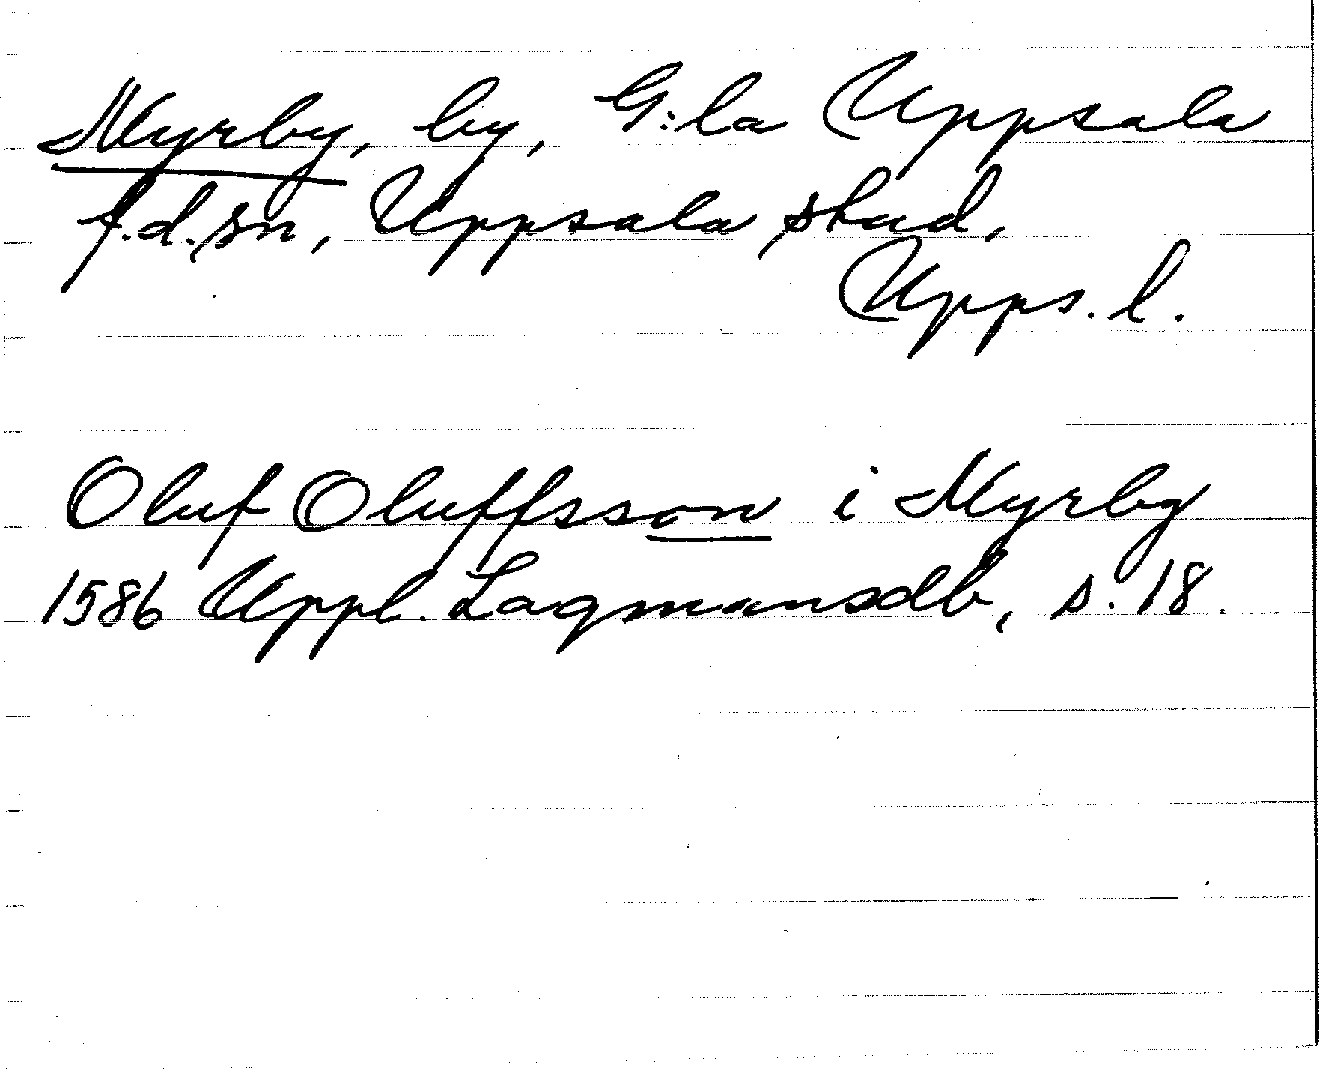 Myrby, by, G:la Uppsala
f.d. sn, Uppsala stad,
Upps. l.
Oluf Oluffsson i Myrby
1586 Uppl. Lagmansdb, s. 18.